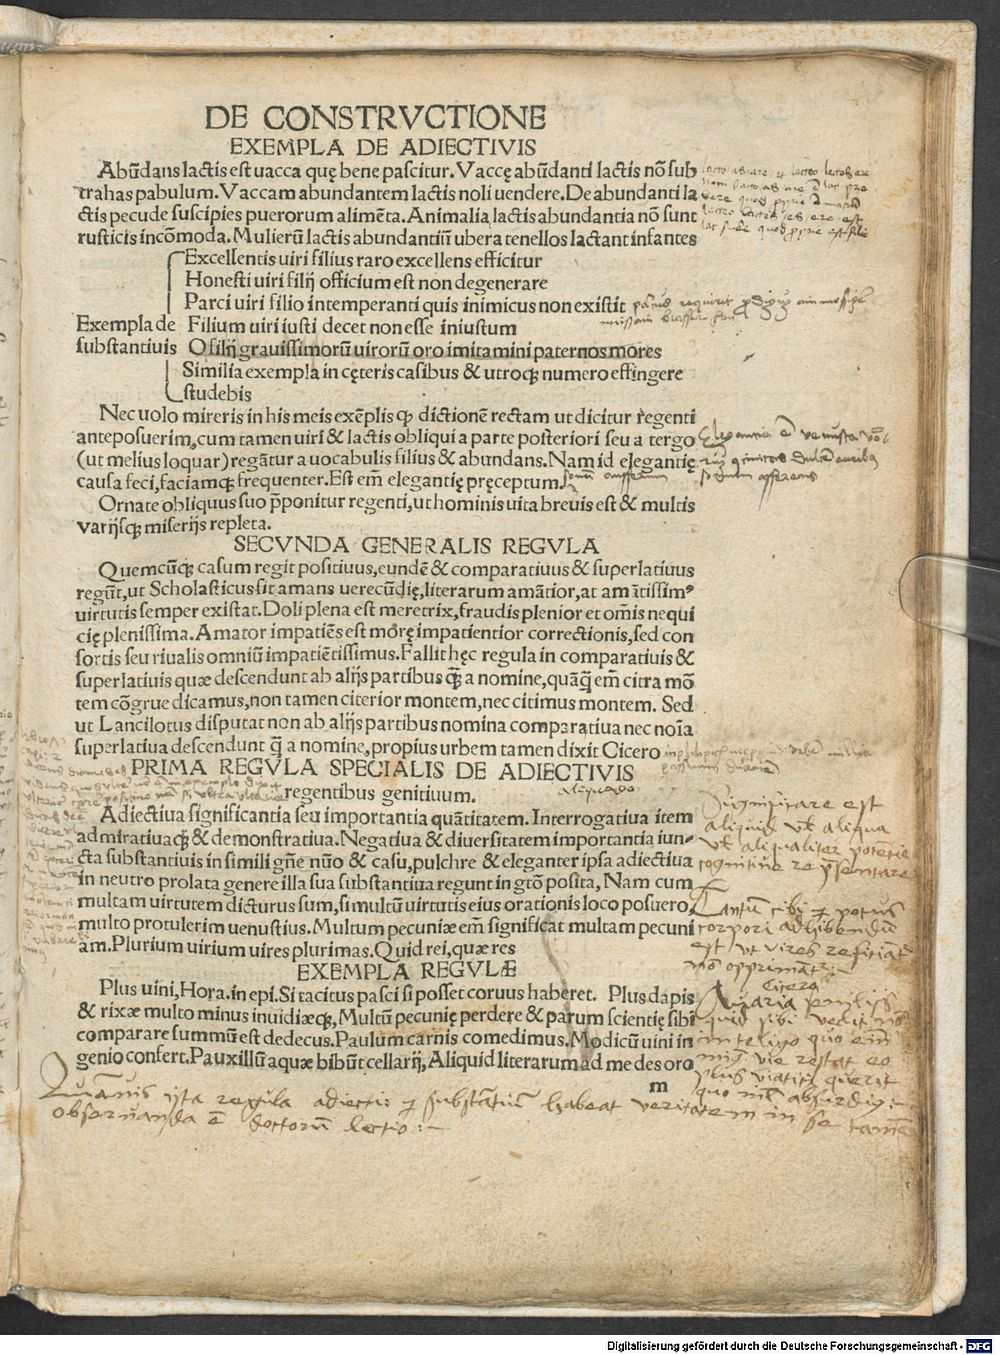 DE CONSTRVCTIONE
EXEMPLA DE ADIECTIVIS
Abūdans lactis est uacca quę bene pascitur. Vaccę abūdanti lactis nō sub
trahas pabulum. Vaccam abundantem lactis noli uendere. De abundanti la
ctis pecude suscipies puerorum alimēta. Animalia lactis abundantia nō sunt
rusticis incōmoda. Mulierū lactis abundantiū ubera tenellos lactant infantes
Excellentis uiri filius raro excellens efficitur
Honesti uiri filij officium est non degenerare
Parci uiri filio intemperanti quis inimicus non existit
Exempla de Filium uiri iusti decet non esse iniustum
substantiuis O filij grauissimorū uirorū oro imitamini paternos mores
Similia exempla in cęteris casibus & utroqꝫ numero effingere
studebis
Nec uolo mireris in his meis exēplis ꝙ dictionē rectam ut dicitur regenti
anteposuerim, cum tamen uiri & lactis obliqui a parte posteriori seu a tergo
(ut melius loquar) regātur a uocabulis filius & abundans. Nam id elegantię
causa feci, faciamqꝫ frequenter. Est em̄ elegantię pręceptum.
Ornate obliquus suo p̄ponitur regenti, ut hominis uita breuis est & multis
varijsqꝫ miserijs repleta.
SECVNDA GENERALIS REGVLA
Quemcūqꝫ casum regit positiuus, eundē & comparatiuus & superlatiuus
regūt, ut Scholasticus sit amans uerecūdię, literarum amātior, at amātissimꝰ
uirtutis semper existat. Doli plena est meretrix, fraudis plenior et om̄is nequi
cię plenissima. Amator impatiēs est morę impatientior correctionis, sed con
sortis seu riualis omniū impatiētissimus. Fallit hęc regula in comparatiuis &
superlatiuis quæ descendunt ab alijs partibus qꝫ̄ a nomine, quāq̄ em̄ citra mō
tem cōgrue dicamus, non tamen citerior montem, nec citimus montem. Sed
ut Lancilotus disputat non ab alijs partibus nomina comparatiua nec noīa
superlatiua descendunt q̄ a nomine, propius urbem tamen dixit Cicero
PRIMA REGVLA SPECIALIS DE ADIECTIVIS
regentibus genitiuum.
Adiectiua significantia seu importantia quātitatem. Interrogatiua item
admiratiuaqꝫ & demonstratiua. Negatiua & diuersitatem importantia iun-
cta substantiuis in simili gn̄e nūo & casu, pulchre & eleganter ipsa adiectiua
in neutro prolata genere illa sua substantiua regunt in gtō posita, Nam cum
multam uirtutem dicturus sum, si multū uirtutis eius orationis loco posuero,
multo protulerim uenustius. Multum pecuniæ em̄ significat multam pecuni
am. Plurium uirium uires plurimas. Quid rei, quæ res
EXEMPLA REGVLÆ
Plus uini, Hora. in epi. Si tacitus pasci si posset coruus haberet. Plus dapis
& rixæ multo minus inuidiæqꝫ, Multū pecunię perdere & parum scientię sibi
comparare summū est dedecus. Paulum carnis comedimus. Modicū uini in
genio confert. Pauxillū aquæ bibūt cellarij, Aliquid literarum ad me des oro
m
Significare est
aliquid vl aliqua
vl aliqualiter
Tantū cibi et potus
corpori adhibendū
est ut vires reficiant
nō opprimant
Cicero
Avaria senilis
quid sibi velit nō
intelligo
plus viatici querit
Quāvis ista regula adiecti et substātiui habeat veritatem in se tamen
observanda ē doctorū lectio :-
Digitalisierung gefördert durch die Deutsche Forschungsgemeinschaft - DFG